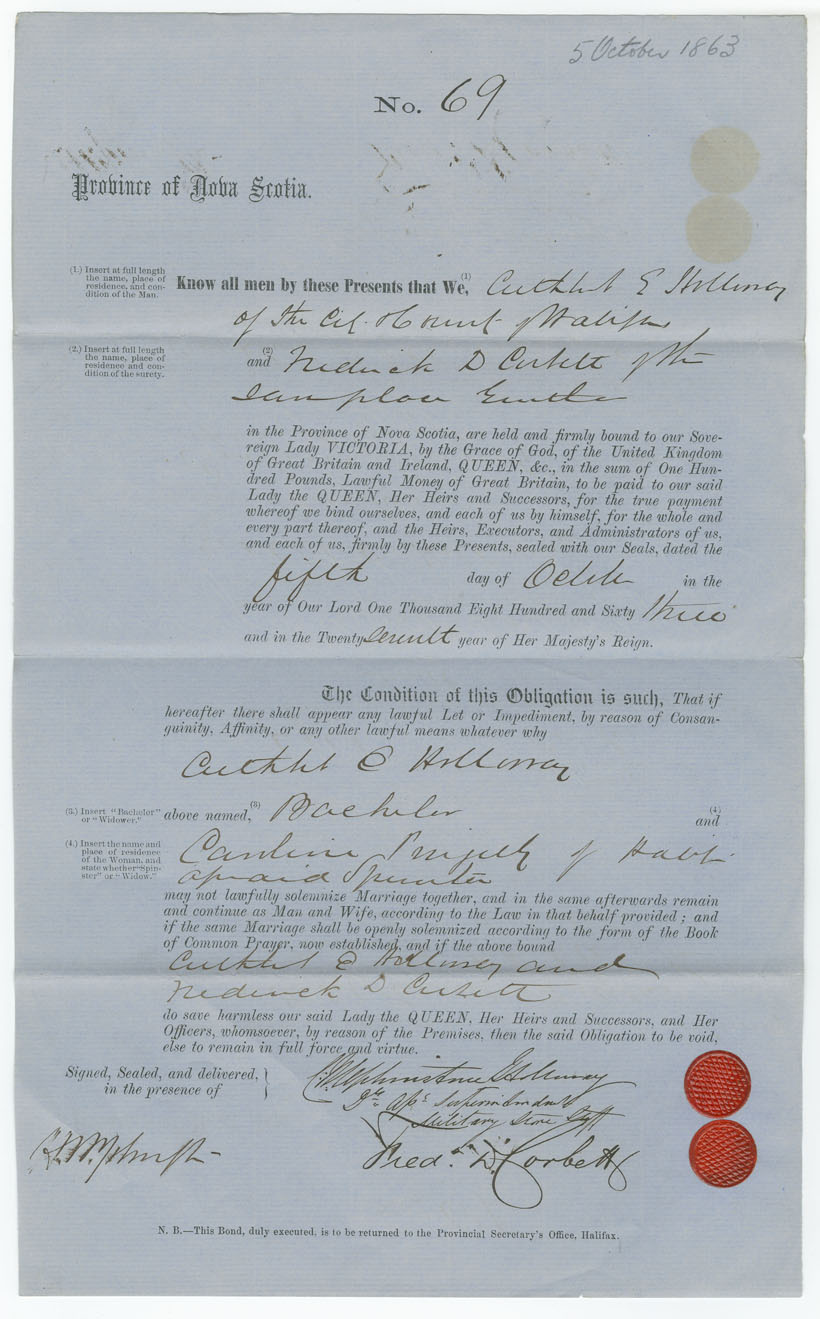 5 October 1863
No. 69
Province of Nova Scotia.
(1.) Insert at full length
the name, place of
residence, and con-
dition of the Man.
Know all men by these Presents that We,(1) Cuthbert E Holloway
of the City & County of Halifax
(2.) Insert at full length
the name, place of
residence and con-
dition of the surety.
and (2) Frederick D Corbett of the
same place
in the Province of Nova Scotia, are held and firmly bound to our Sove-
reign Lady VICTORIA, by the Grace of God, of the United Kingdom
of Great Britain and Ireland, QUEEN, &c., in the sum of One Hun-
dred Pounds, Lawful Money of Great Britain, to be paid to our said
Lady the QUEEN, Her Heirs and Successors, for the true payment
whereof we bind ourselves, and each of us by himself, for the whole and
every part thereof, and the Heirs, Executors, and Administrators of us,
and each of us, firmly by these Presents, sealed with our Seals, dated the
fifth day of October in the
year of Our Lord One Thousand Eight Hundred and Sixty three
and in the Twenty seventh year of Her Majesty's Reign.
The Condition of this Obligation is such, That if
hereafter there shall appear any lawful Let or Impediment, by reason of Consan-
guinity, Affinity, or any other lawful means whatever why
Cuthbert E Holloway
(3.) Insert "Bachelor"
or "Widower."
above named,(3) Bachelor (4) and
(4.) Insert the name and
place of residence
of the Woman, and
state whether "Spin-
ster" or "Widow."
Caroline of Halifax
aforesaid Spinster
may not lawfully solemnize Marriage together, and in the same afterwards remain
and continue as Man and Wife, according to the Law in that behalf provided; and
if the same Marriage shall be openly solemnized according to the form of the Book
of Common Prayer, now established, and if the above bound
Cuthbert E Holloway and
Frederick D Corbett
do save harmless our said Lady the QUEEN, Her Heirs and Successors, and Her
Officers, whomsoever, by reason of the Premises, then the said Obligation to be void,
else to remain in full force and virtue.
Signed, Sealed, and delivered,
in the presence of
Holloway
Superintendent
Military Store Dept
Fred. D. Corbett
N. B.—This Bond, duly executed, is to be returned to the Provincial Secretary's Office, Halifax.